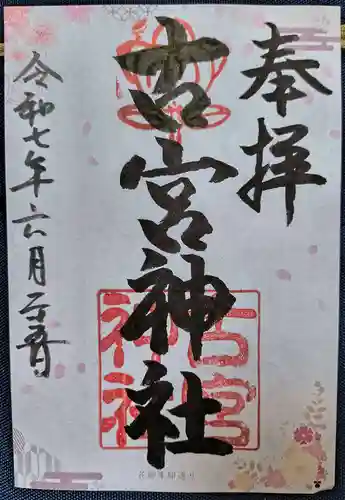 奉拝
古宮神社
古宮神社
令和七年六月